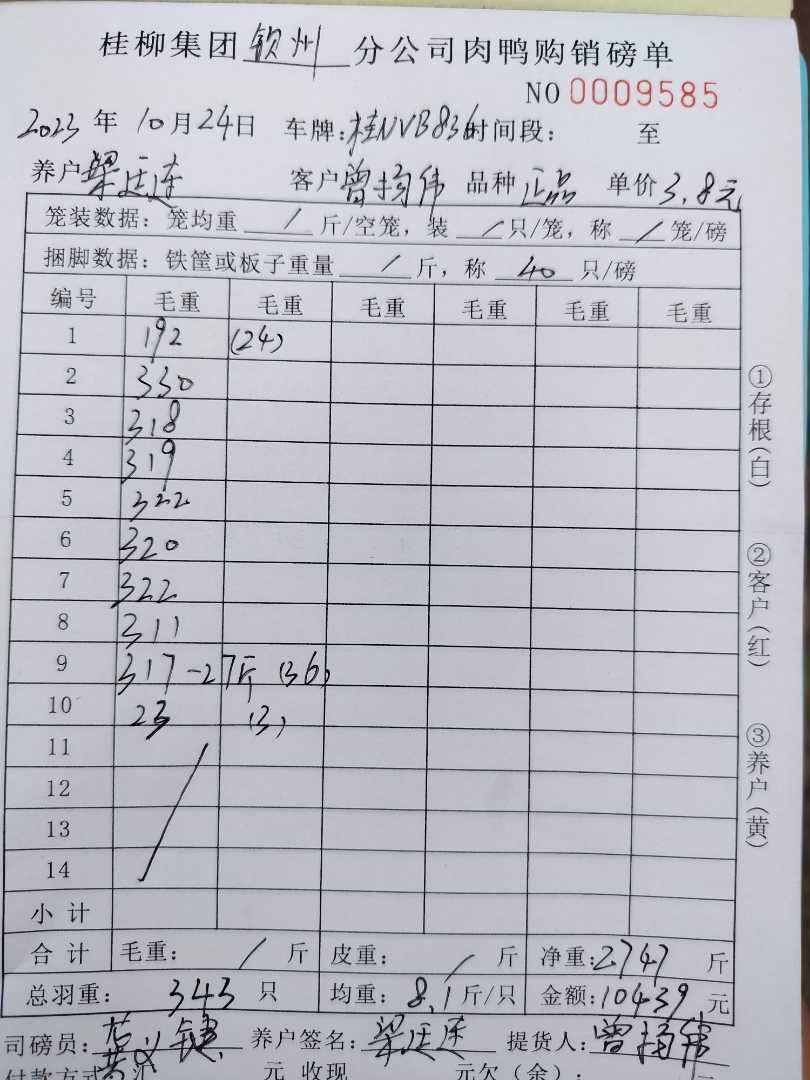 桂柳集团钦州分公司肉鸭购销磅单
NO 0009585
2023年10月24日 车牌:桂NVB836时间段: 至
养户梁廷连 客户曾扬伟 品种正品 单价3.8元
笼装数据:笼均重 / 斤/空笼,装 / 只/笼,称 / 笼/磅
捆脚数据:铁筐或板子重量 / 斤,称 40 只/磅
编号 毛重 毛重 毛重 毛重 毛重 毛重
1 192 (24)
2 330
3 318
4 319
5 322
6 320
7 322
8 311
9 317-27斤 (36)
10 23 (3)
11
12
13
14
小计
合计 毛重: / 斤 皮重: / 斤 净重:2747 斤
总羽重: 343 只 均重:8.1斤/只 金额:10439元
司磅员: 养户签名:梁廷连 提货人:曾扬伟
付款方式 汇 元 收现 元欠(余):
①存根(白)
②客户(红)
③养户(黄)